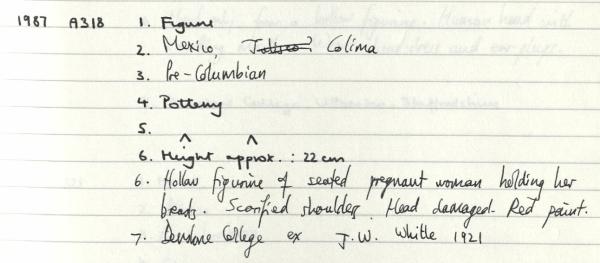 1987 A318 1. Figure
2. Mexico, Jalisco? Colima
3. Pre-Columbian
4. Pottery
5.
6. Height approx. : 22cm
6. Hollow figurine of seated pregnant woman holding her
breasts. Scarified shoulders. Head damaged. Red paint.
7. Denstone College ex J.W. Whittle 1921